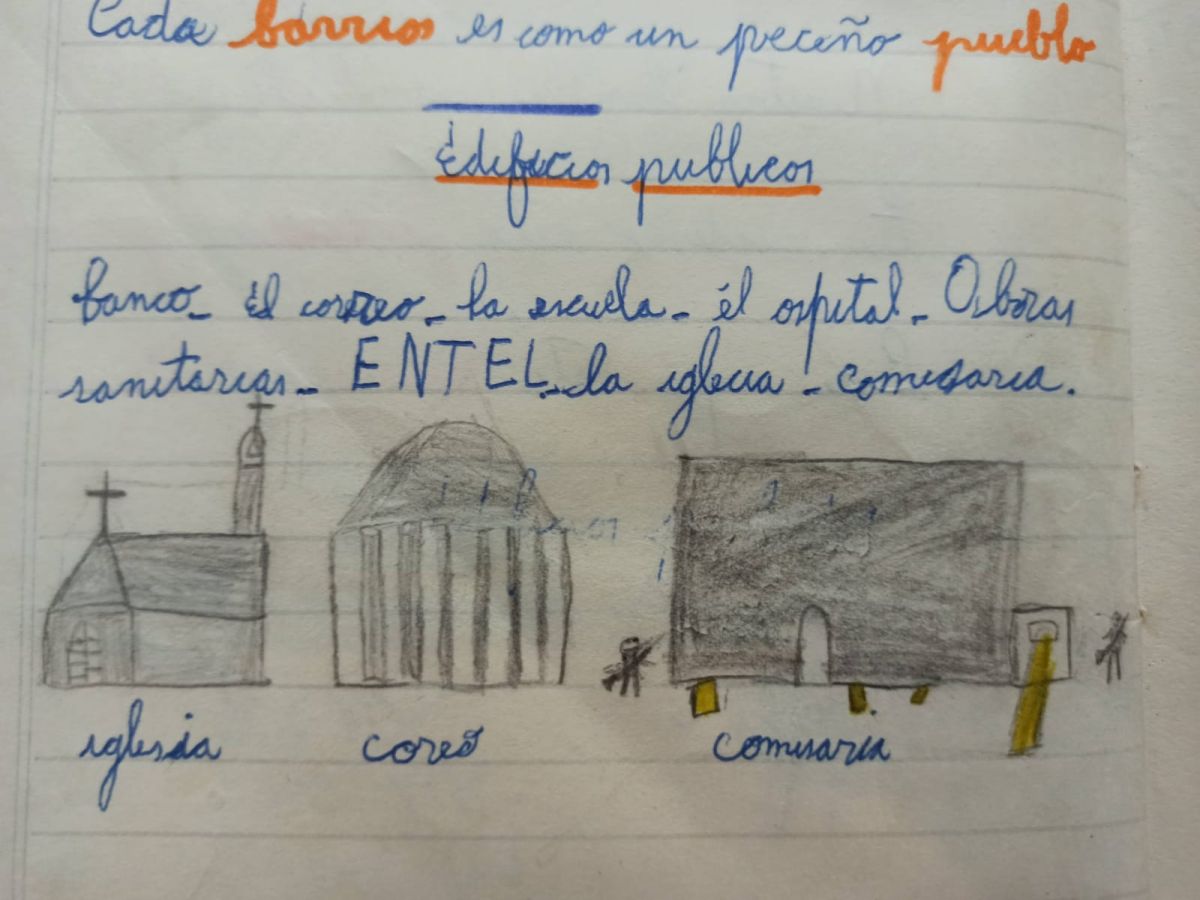 Cada barrios es como un peceño pueblo
Edificios publicos
banco - El correo - la escuela - él ospital - Obras
sanitarias - ENTEL - la iglecia - comisaria.
iglesia coreo comisaria